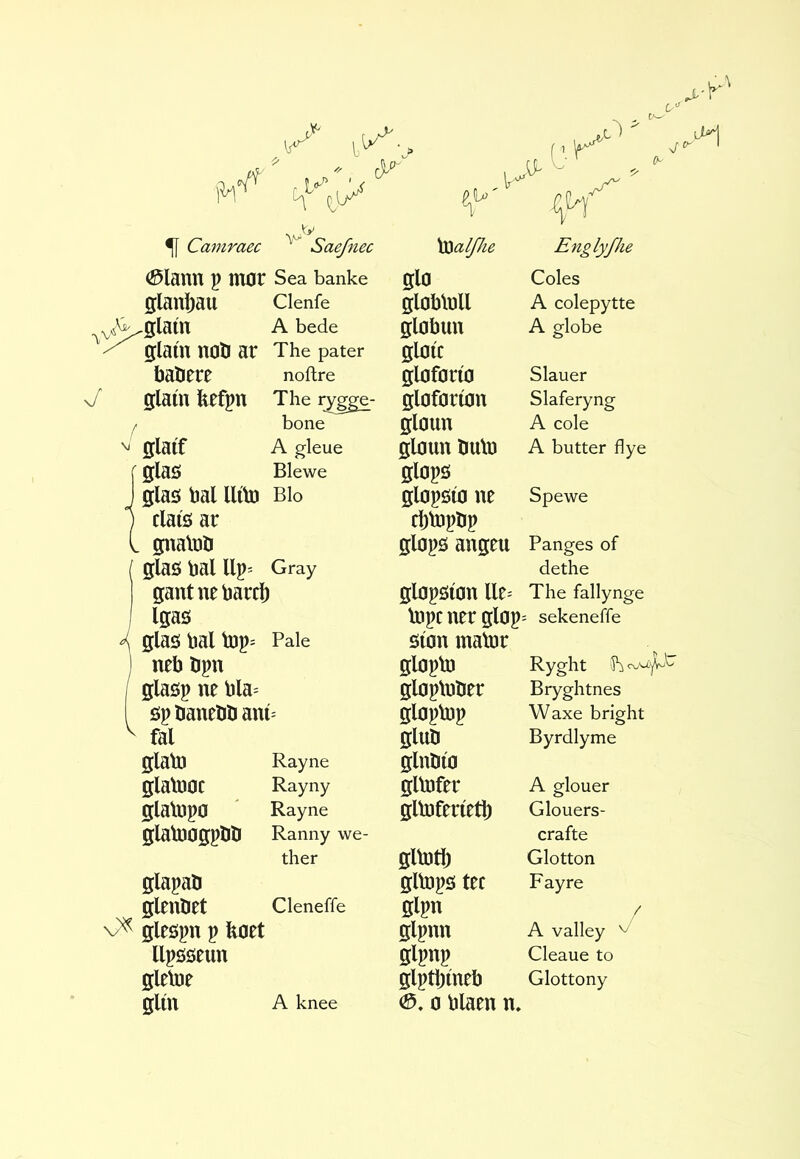 ¶ Camraec Saeſnec
Glann y mor Sea banke
glanhau Clenſe
glain A bede
glain nod ar The pater
badere noſtre
glain kefyn The rygge-
bone
glaif A gleue
glas Blewe
glas val lliw Blo
clais ar
gnawd
glas val lly= Gray
gant ne varch
lgas
glas val wy= Pale
neb dyn
glasy ne vla=
sy danedd ani=
fal
glaw Rayne
glawoc Rayny
glawyo Rayne
glawogydd Ranny we-
ther
glayad
glendet Cleneſſe
glesyn y koet
llysseun
glewe
glin A knee
walſhe Englyſhe
glo Coles
globwll A colepytte
globun A globe
gloic
gloforio Slauer
gloforion Slaferyng
gloun A cole
gloun duw A butter flye
gloys
gloysio ne Spewe
chwydy
gloys angeu Panges of
dethe
gloysion lle= The fallynge
wyc ner gloy= sekeneſſe
sion mawr
gloyw Ryght
gloywder Bryghtnes
gloywy Waxe bright
glud Byrdlyme
glndio
glwfer A glouer
glwferieth Glouers-
crafte
glwth Glotton
glwys tec Fayre
glyn
glynn A valley
glyny Cleaue to
glythineb Glottony
G. o vlaen n.